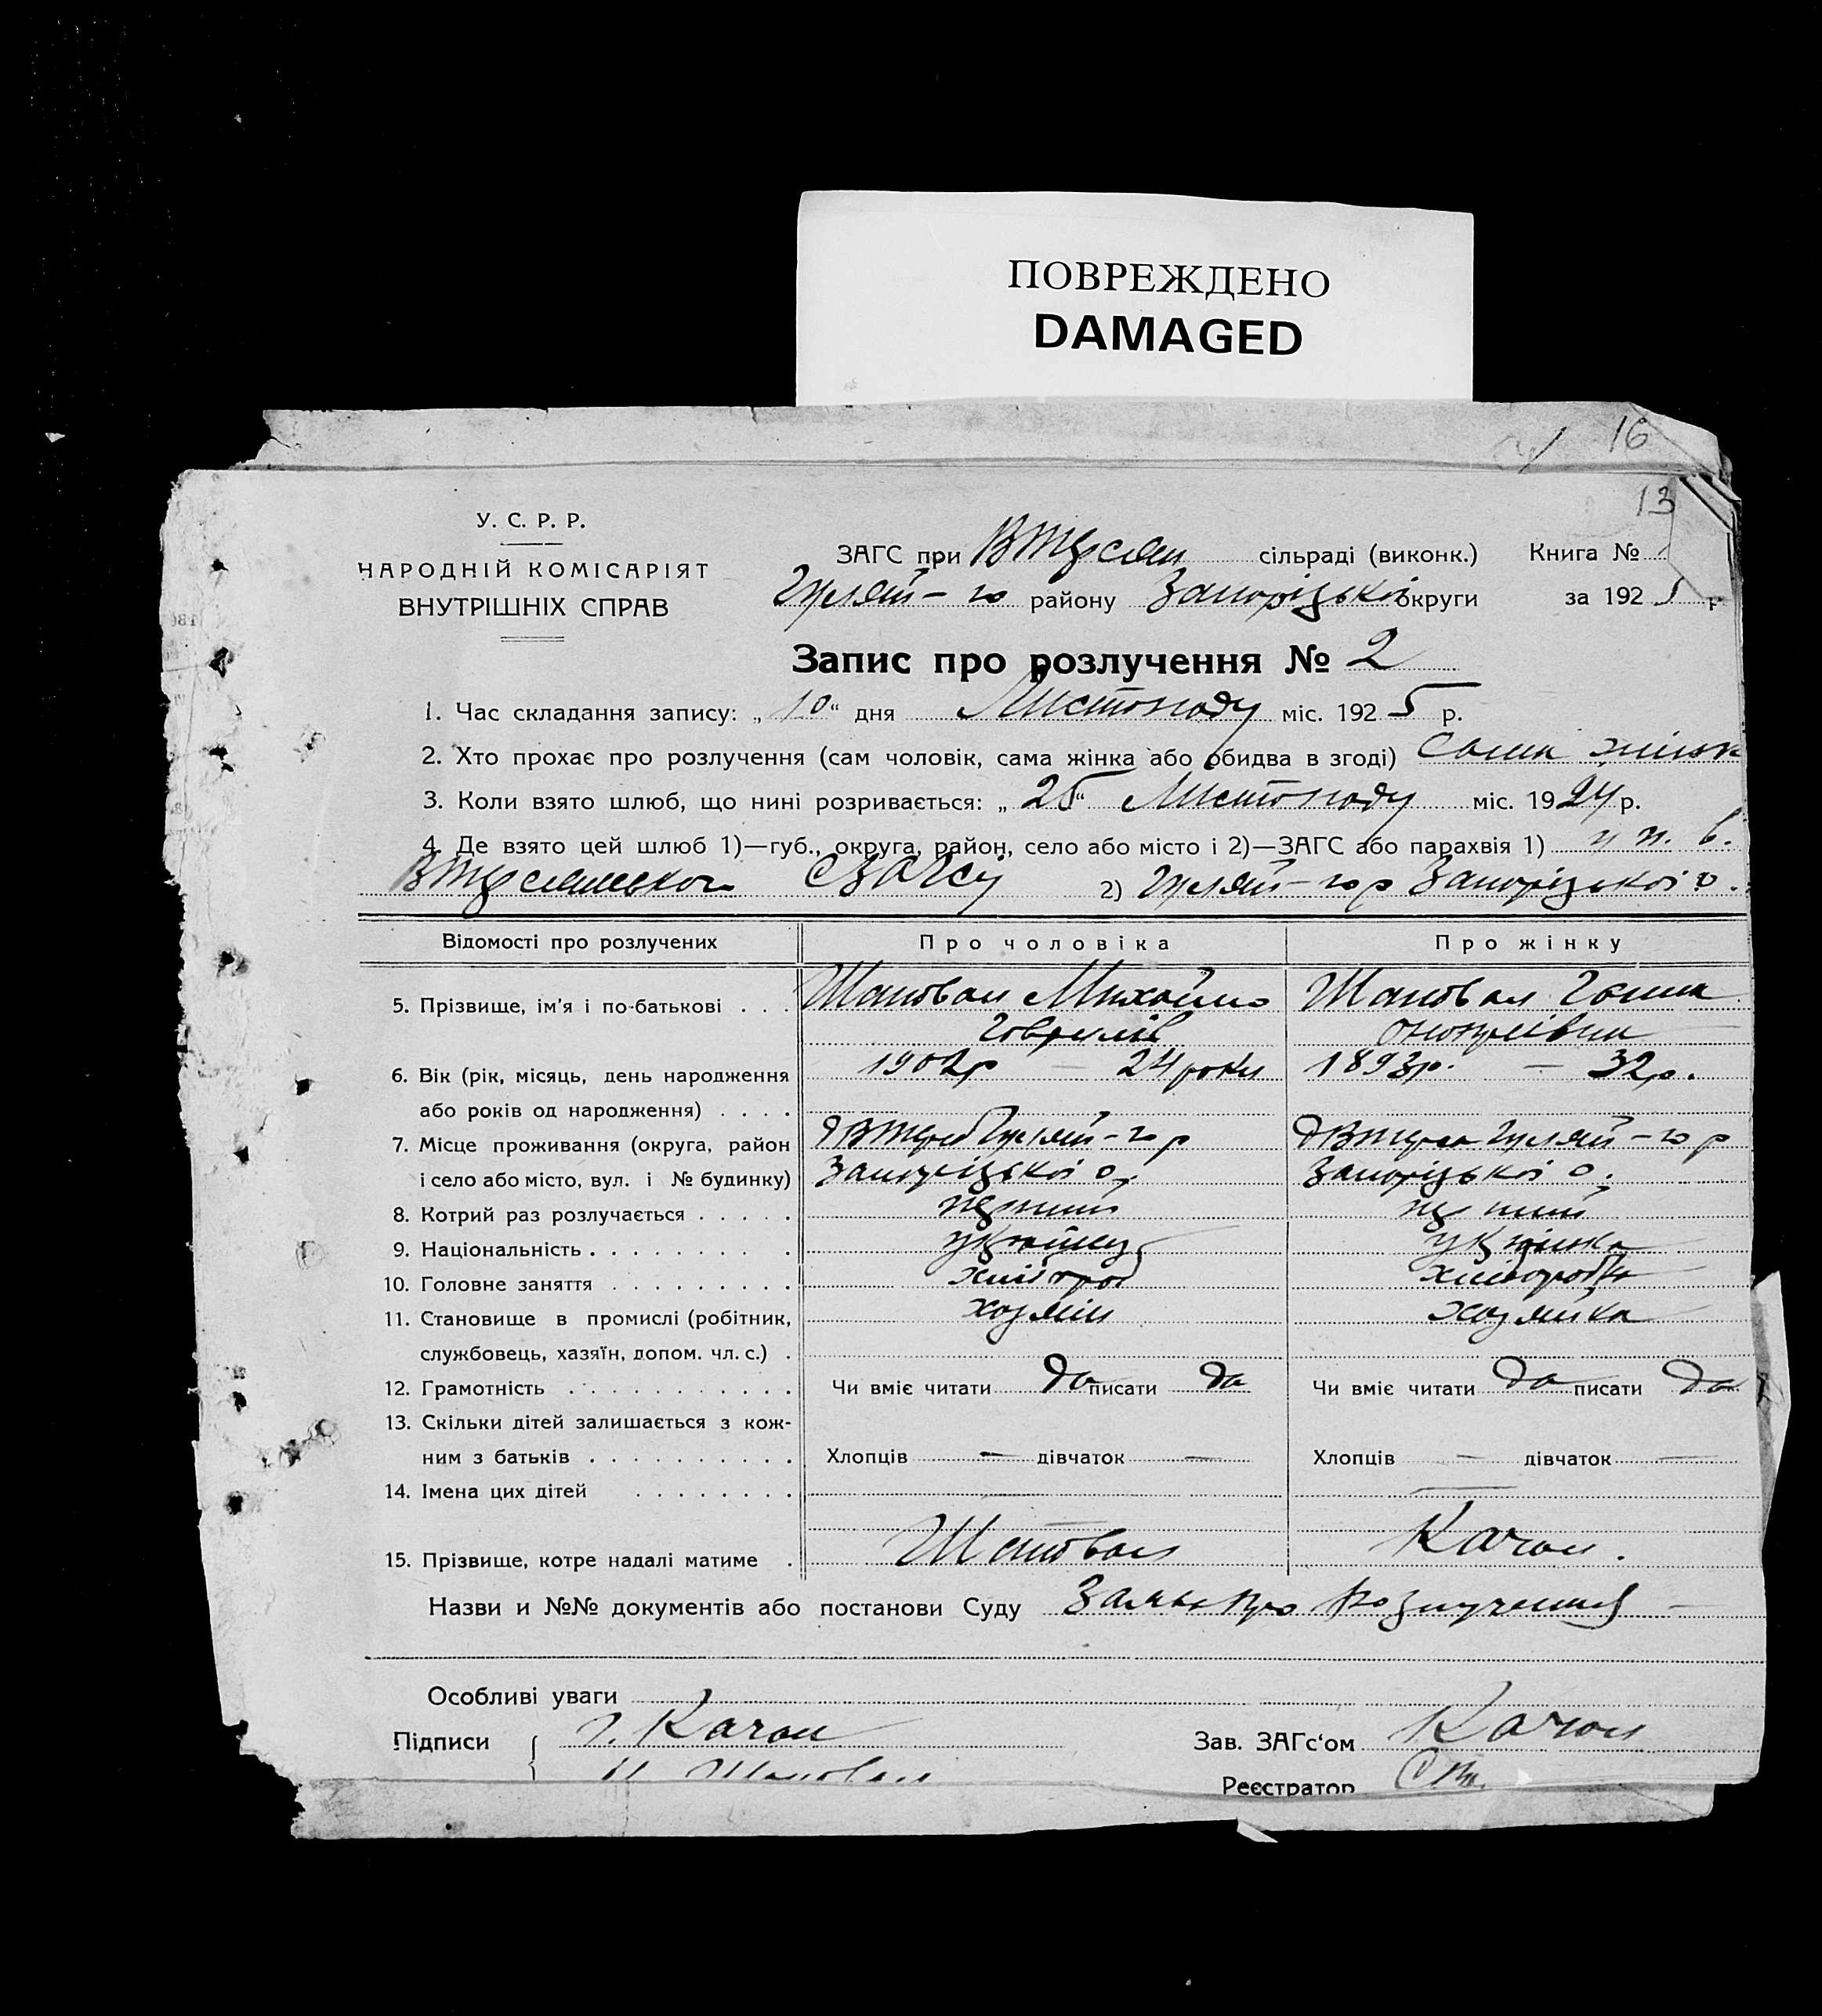 ПОВРЕЖДЕНО
DAMAGED
16
13
У. С. Р. Р.
НАРОДНІЙ КОМІСАРІЯТ
ВНУТРІШНІХ СПРАВ
ЗАГС при сільраді (виконк.) Книга №
Гуляй-го району Запорізької округи за 1925 р.
Запис про розлучення № 2
1. Час складання запису: „10“ дня Листопаду міс. 1925 р.
2. Хто прохає про розлучення (сам чоловік, сама жінка або обидва в згоді) Сама жінк
3. Коли взято шлюб, що нині розривається: „25“ Листопаду міс. 1924 р.
4. Де взято цей шлюб 1)—губ., округа, район, село або місто і 2)—ЗАГС або парахвія 1)
2) Гуляй-го р Запорізької о.
Відомості про розлучених Про чоловіка Про жінку
5. Прізвище, ім'я і по-батькові . . . Шаповал Михайло Шаповал Ганна
Гаврилів Онопріївна
6. Вік (рік, місяць, день народження 1902р — 24 роки 1893р. — 32р.
або років од народження) . . . .
7. Місце проживання (округа, район Гуляй-го р Гуляй-го р
і село або місто, вул. і № будинку) Запорізької о. Запорізької о.
8. Котрий раз розлучається . . . . .
9. Національність . . . . . . . .
10. Головне заняття . . . . . . . . хлібороб хліборобка
11. Становище в промислі (робітник, хозяїн хозяйка
службовець, хазяїн, допом. чл. с.) .
12. Грамотність . . . . . . . . . . . Чи вміє читати да писати да Чи вміє читати да писати да
13. Скільки дітей залишається з кож-
ним з батьків . . . . . . . . . . Хлопців — дівчаток — Хлопців — дівчаток —
14. Імена цих дітей . . . . . . . . —
15. Прізвище, котре надалі матиме . Шаповал Качан.
Назви и №№ документів або постанови Суду Заява про розлучення —
Особливі уваги
Підписи Г. Качан Зав. ЗАГс‘ом Качан
Шаповал Реєстратор